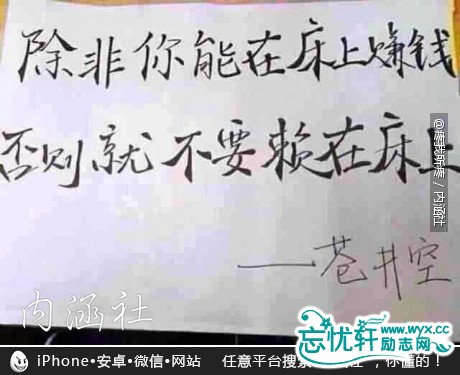 除非你能在床上赚钱
否则就不要赖在床上
——苍井空
内涵社
忘忧轩 www.wyx.cc
励志网
iPhone·安卓·微信·网站 任意平台搜索 ，你懂的！